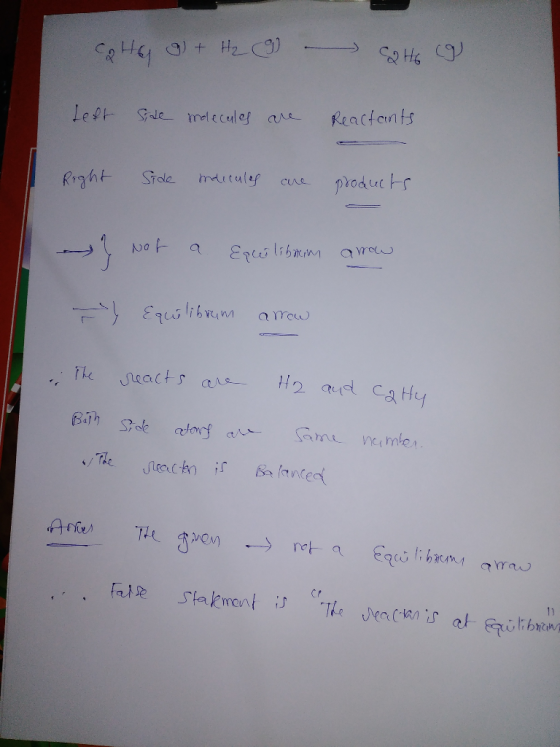 C2H4 (g) + H2 (g) → C2H6 (g)
Left side molecules are Reactants
Right side molecules are products
→ } Not a Equilibrium arrow
⇌ } Equilibrium arrow
∴ The reacts are H2 and C2H4
Both side atoms are same number.
∴ The reaction is Balanced
The given → not a Equilibrium arrow
∴ False statement is "The reaction is at Equilibrium"